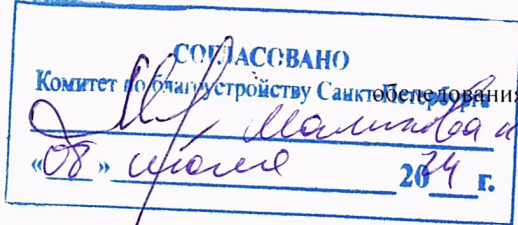 СОГЛАСОВАНО
Комитет по благоустройству Санкт-Петербурга
обследования
Маликова
«08» июля 2024 г.